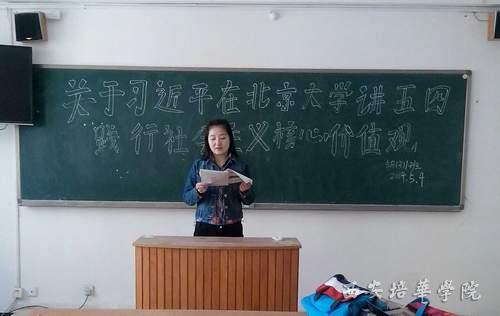 关于习近平在北京大学讲五四
践行社会主义核心价值观
2014.5.4
西安培華學院